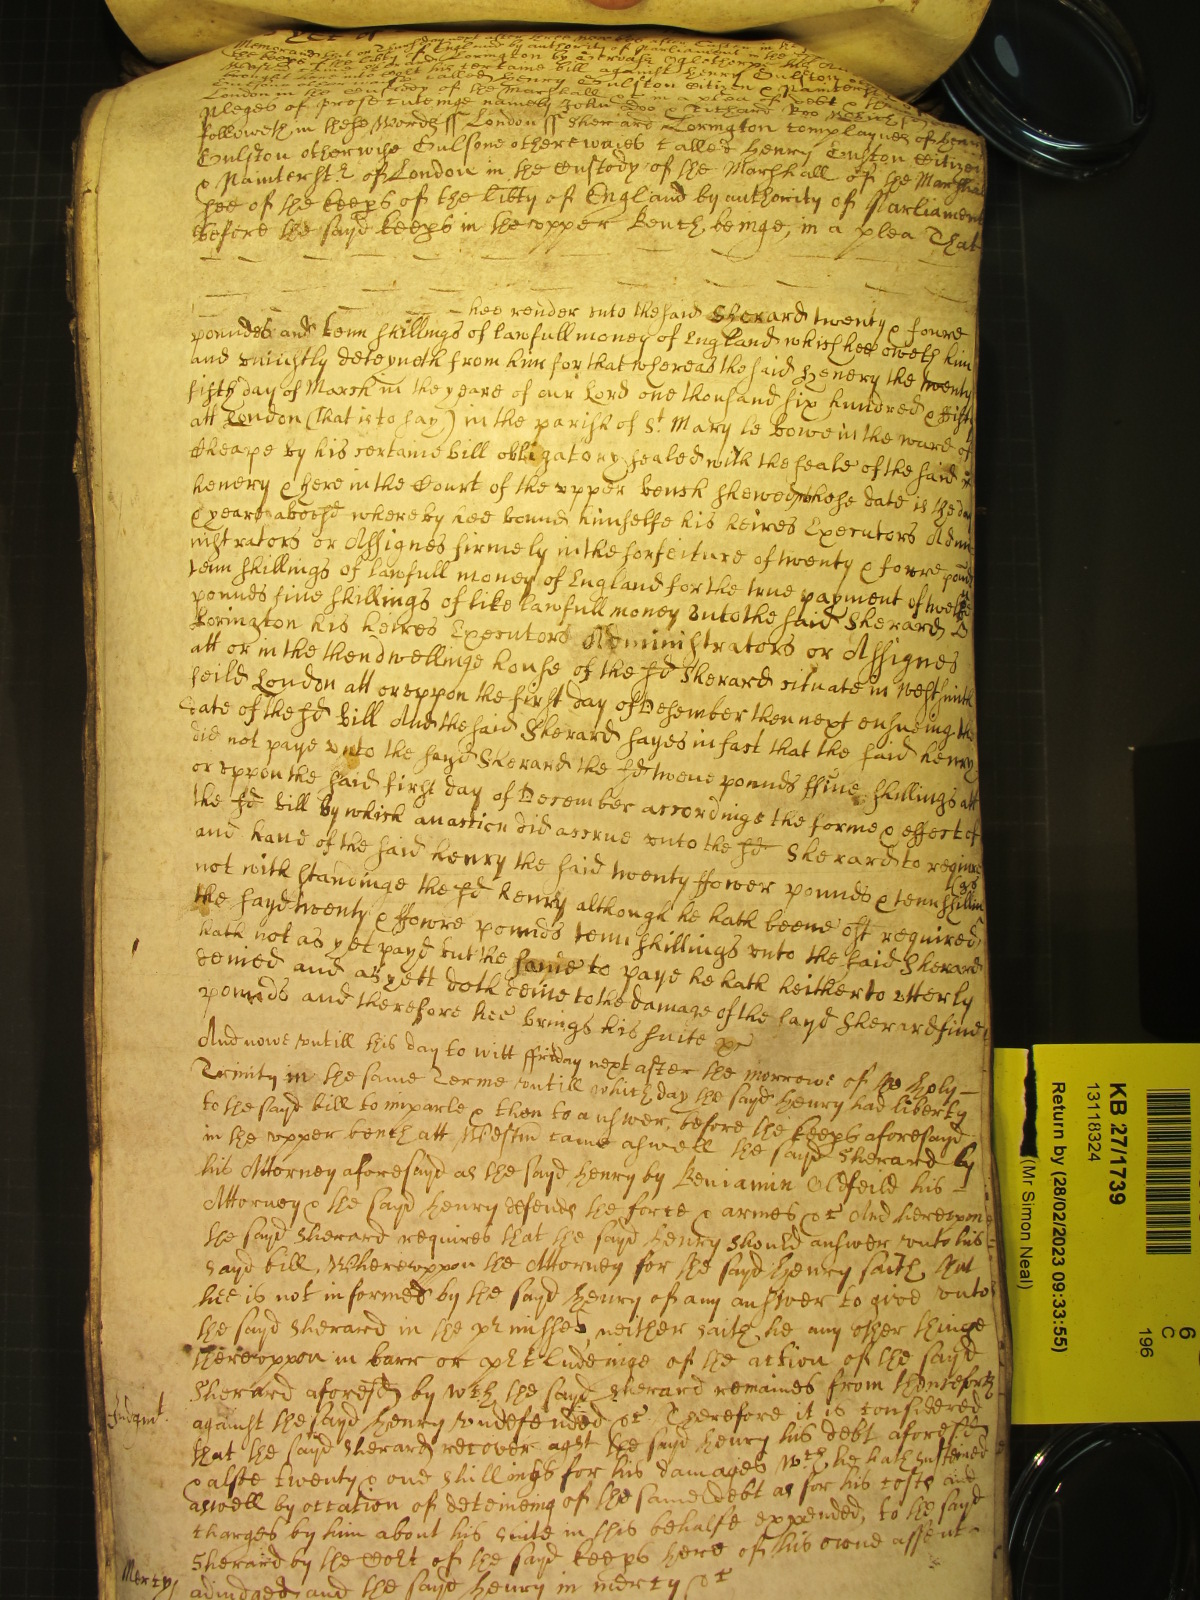 Memorand that on
the keeps of the libty of England by authority of Parliament in the
Lorington by Gervase Oglethorpe his
brought here into Court his certaine bill against Henry Gulston
called Henry Gulston Citizen & Painter
London in the Custody of the Marshall &c in a plea of debt & there
pleges of prosecuteinge namely John Doo & Richard Roo which
followeth in these Words ss London ss Sherard Lorington complaynes of Henry
Gulston otherwise Gulsone otherwaies called Henry Gulston Citizen
& Painterstr of London in the Custody of the Marshall of the Marshal
see of the keeps of the libty of England by authority of Parliament
before the sayd keeps in the upper Bench beinge, in a plea That
hee render unto the said Sherard twenty & foure
poundes and tenn shillings of lawfull money of England which hee oweth him
and uniustly deteyneth from him for that whereas the said Henery the twenty
fifth day of March in the yeare of our Lord one thousand six hundred & fift
att London (that is to say) in the parish of St. Mary le Bowe in the ward of
Cheape by his certaine bill obligatory sealed with the seale of the said
Henery & here in the Court of the upper bench shewed whose date is the day
& yeare abovesd whereby hee bound himselfe his heires Executors Admi
nistrators or Assignes firmely in the forfeiture of twenty & fowre pound
tenn shillings of lawfull money of England for the true payment of twelve
pounds five shillings of like lawfull money unto the said Sherard
Lorington his heires Executors Administrators or Assignes
att or in the then dwellinge house of the sd Sherard situate in
feild London att or uppon the first day of Desember then next ensueing the
date of the sd bill And the said Sherard sayes in fact that the said Henry
did not paye unto the sayd Sherard the sd twelve pounds ffive shillings att
or uppon the said first day of December accordinge the forme & effect of
the sd bill by which an accion did accrue unto the sd Sherard to require
and have of the said Henry the said twenty ffower pounds & tenn shillings
not with standinge the sd Henry although he hath beene oft required
the sayd twenty & ffowre pounds tenn shillings unto the said Sherard
hath not as yet payd but the same to paye he hath heitherto utterly
denied and as yett doth denie to the damage of the sayd Sherard five
pounds and therefore hee brings his suite &c
And nowe untill this day to witt ffriday next after the morrowe of the holy
Trinity in the same Terme untill which day the sayd Henry had liberty
to the sayd bill to imparle & then to answer, before the keeps aforesayd
in the upper bench att Westm came aswell the sayd Sherard by
his Attorney aforesayd as the sayd Henry by Beniamin Oldfeild his
Attorney & the sayd Henry defends the force & armes &c And hereupon
the sayd Sherard requires that the sayd Henry should answer unto his
sayd bill, Whereuppon the Attorney for the sayd Henry saith that
hee is not informed by the sayd Henry of any answer to give unto
the sayd Sherard in the prmisses neither saith he any other thinge
thereuppon in barr or prcludeinge of the action of the sayd
Sherard aforesd by wch the sayd Sherard remaines from thenceforth
Judgmt.
against the sayd Henry undefended &c Therefore it is considered
that the sayd Sherard recover agst the sayd Henry his debt aforesd
& alsoe twenty & one shillings for his damages wch he hath susteined
aswell by occation of deteineing of the same debt as for his costs and
charges by him about his suite in this behalfe expended, to the sayd
Sherard by the Court of the sayd keeps here of his owne assent
Mercy
adiudged and the sayd Henry in mercy &c
KB 27/1739
13118324
Return by (28/02/2023 09:33:55)
(Mr Simon Neal)
6
C
196